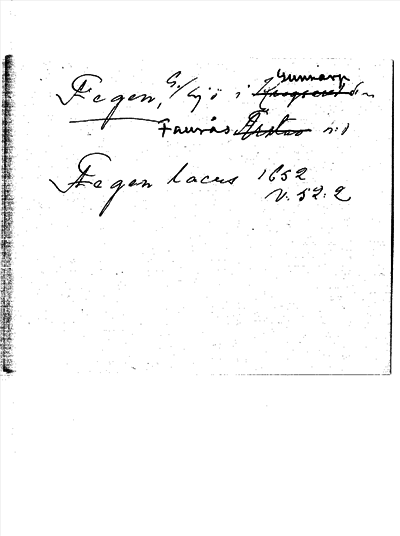 Gunnarp
Fegen, G. /sjö i sn
Faurås hd
Fegen lacus 1652
v. 52:2